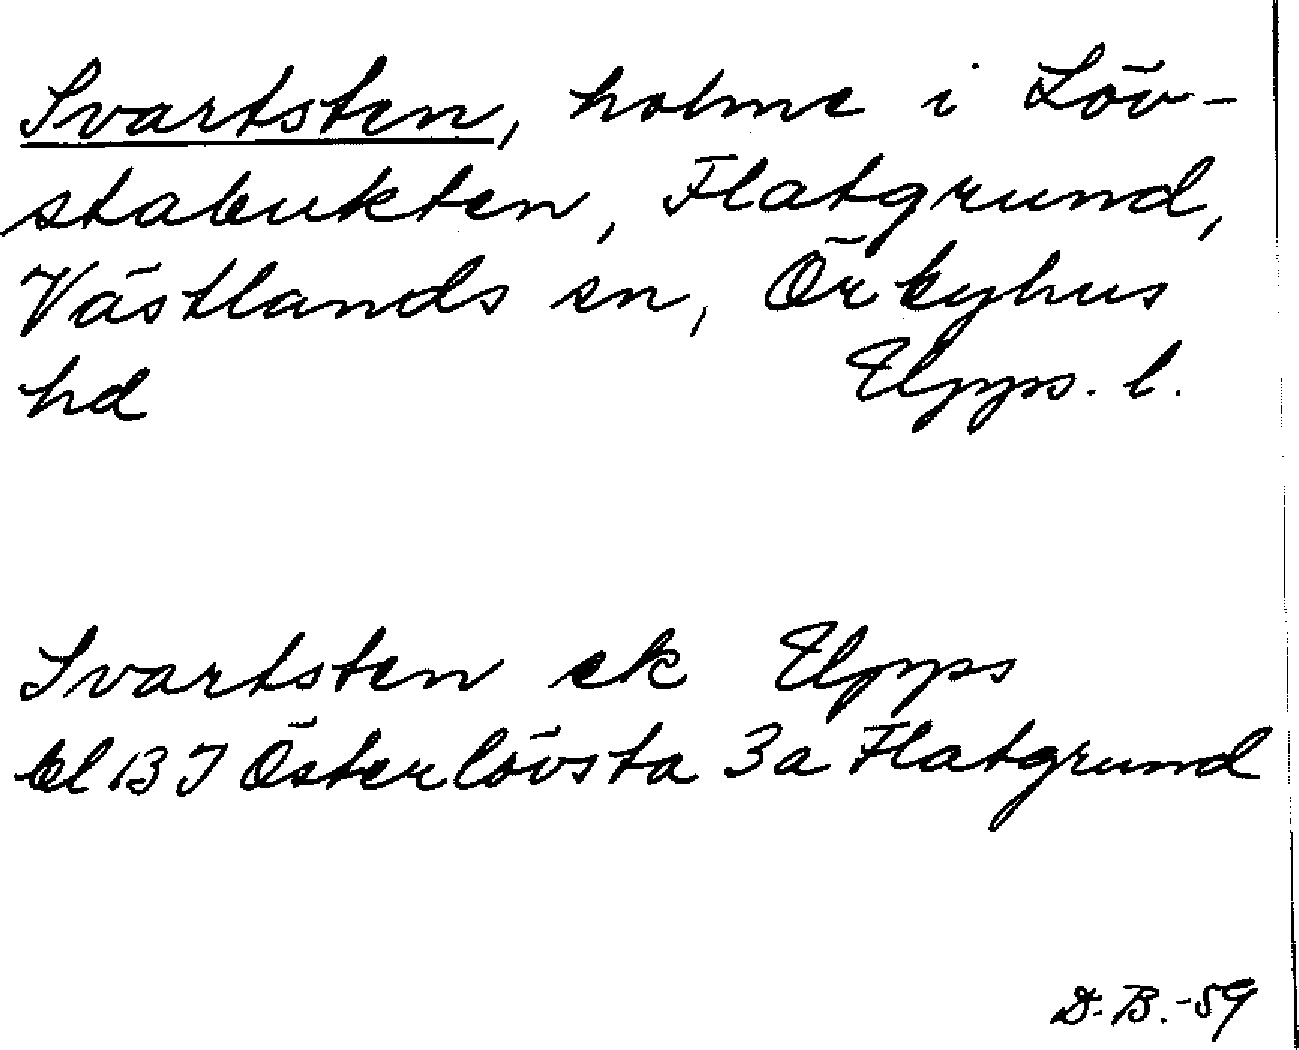 Svartsten, holme i Löv-
stabukten, Flatgrund,
Västlands sn, Örbyhus
hd Upps. l.
Svartsten ek Upps
bl B I Österlövsta 3a Flatgrund
D.B.-59